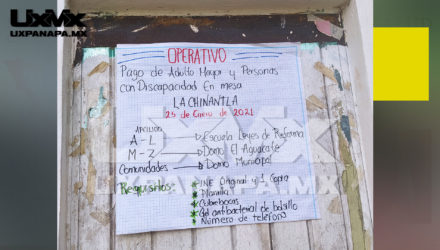 UxMx
UXPANAPA.MX
OPERATIVO
Pago de Adulto Mayor y Personas
con Discapacidad En mesa
LA CHINANTLA
25 de Enero de 2021
APELLIDO
A - L → Escuela Leyes de Reforma
M - Z → Domo El Aguacate
Comunidades → Domo Municipal
Requisitos:
INE Original y 1 Copia
Planilla
Cubrebocas
Gel antibacterial de bolsillo
Número de telefono
UXMX
UXPANAPA.MX